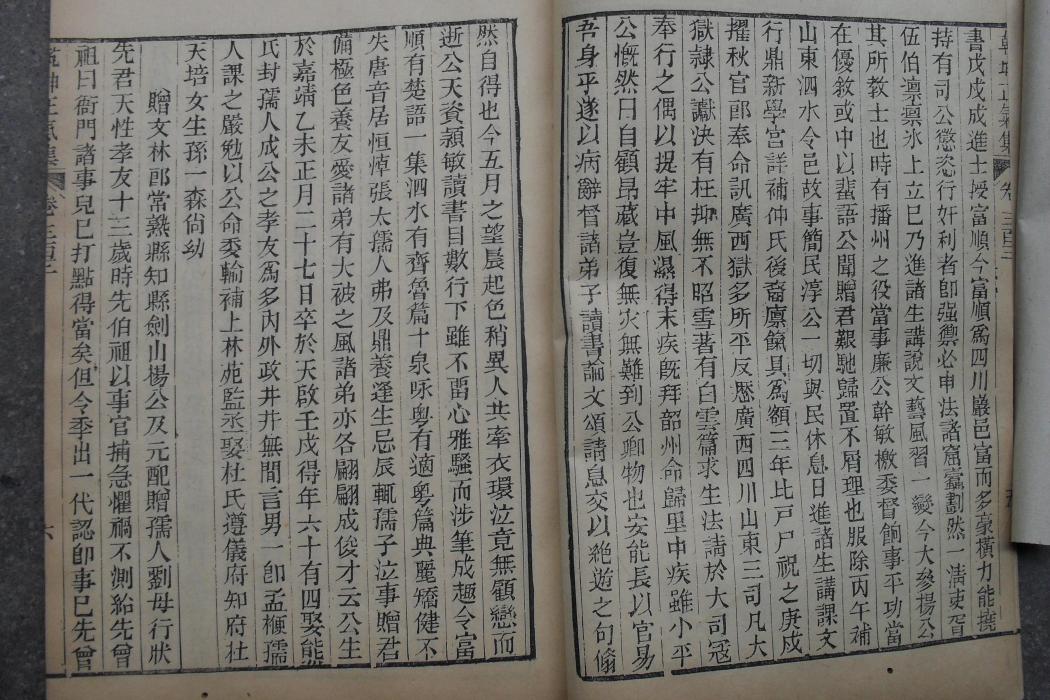 乾坤正氣集 卷三百三
書戊戌成進士授富順今富順爲四川巖邑富而多豪橫力能撓
持有司公懲恣行奸利者卽强禦必申法諸窟蠹劃然一淸吏胥
伍伯凛凛氷上立已乃進諸生講說文藝風習一變今大參楊公
其所教士也時有播州之役當事廉公幹敏檄委督餉事平功當
在優敘或中以蜚語公聞贈君艱馳歸置不屑理也服除丙午補
山東泗水令邑故事簡民淳公一切與民休息日進諸生講課文
行鼎新學宮詳補仲氏後裔廩餼具爲額三年比戸尸祝之庚戍
擢秋官郎奉命訊廣西獄多所平反慿廣西四川山東三司凡大
獄隸公讞决有枉抑無不昭雪著有白雲篇求生法請於大司冦
奉行之偶以提牢中風濕得末疾旣拜韶州命歸里中疾雖小平
公慨然曰自顧昂藏豈復無灾無難到公卿物也安能長以官易
吾身乎遂以病辭督諸弟子讀書論文頌請息交以絶遊之句翛
然自得也今五月之望晨起色稍異人共牽衣環泣竟無顧戀而
逝公天資頴敏讀書目數行下雖不畱心雅騷而涉筆成趣令富
順有楚語一集泗水有齊魯篇十泉咏粤有適粤篇典麗矯健不
失唐音居恒悼張太孺人弗及鼎養逢生忌辰輒孺子泣事贈君
備極色養友愛諸弟有大被之風諸弟亦各翩翩成俊才云公生
於嘉靖乙未正月二十七日卒於天啟壬戍得年六十有四娶能
氏封孺人成公之孝友爲多內外政井井無間言男一卽孟楩孺
人課之嚴勉以公命委輸補上林苑監丞娶杜氏遵儀府知府杜
天培女生孫一森尙幼
贈文林郎常熟縣知縣劍山楊公及元配贈孺人劉母行狀
先君天性孝友十三歲時先伯祖以事官捕急懼禍不測紿先曾
祖曰衙門諸事兒已打點得當矣但令季出一代認卽事已先曾
乾坤正氣集 卷三百三 六